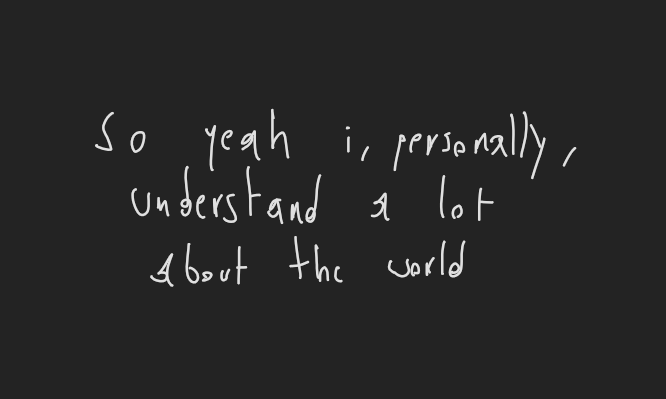 So yeah i, personally,
understand a lot
about the world